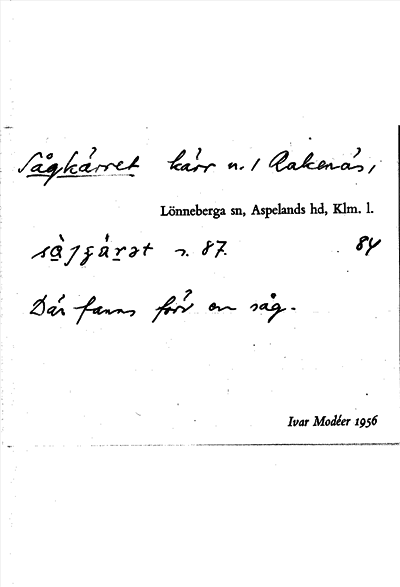 Sågkärret kärr n. / Rakenäs,
Lönneberga sn, Aspelands hd, Klm. l.
s. 87. 84
Där fanns förr en såg.
Ivar Modéer 1956